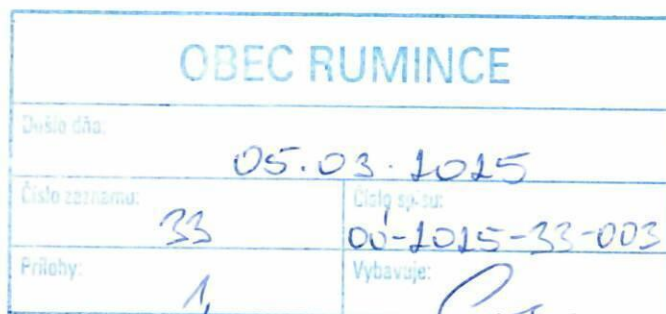 OBEC RUMINCE
Došlo dňa:
05.03.2025
Číslo záznamu:
33
Číslo spisu:
OÚ-2025-33-003
Prílohy:
1,
Vybavuje: